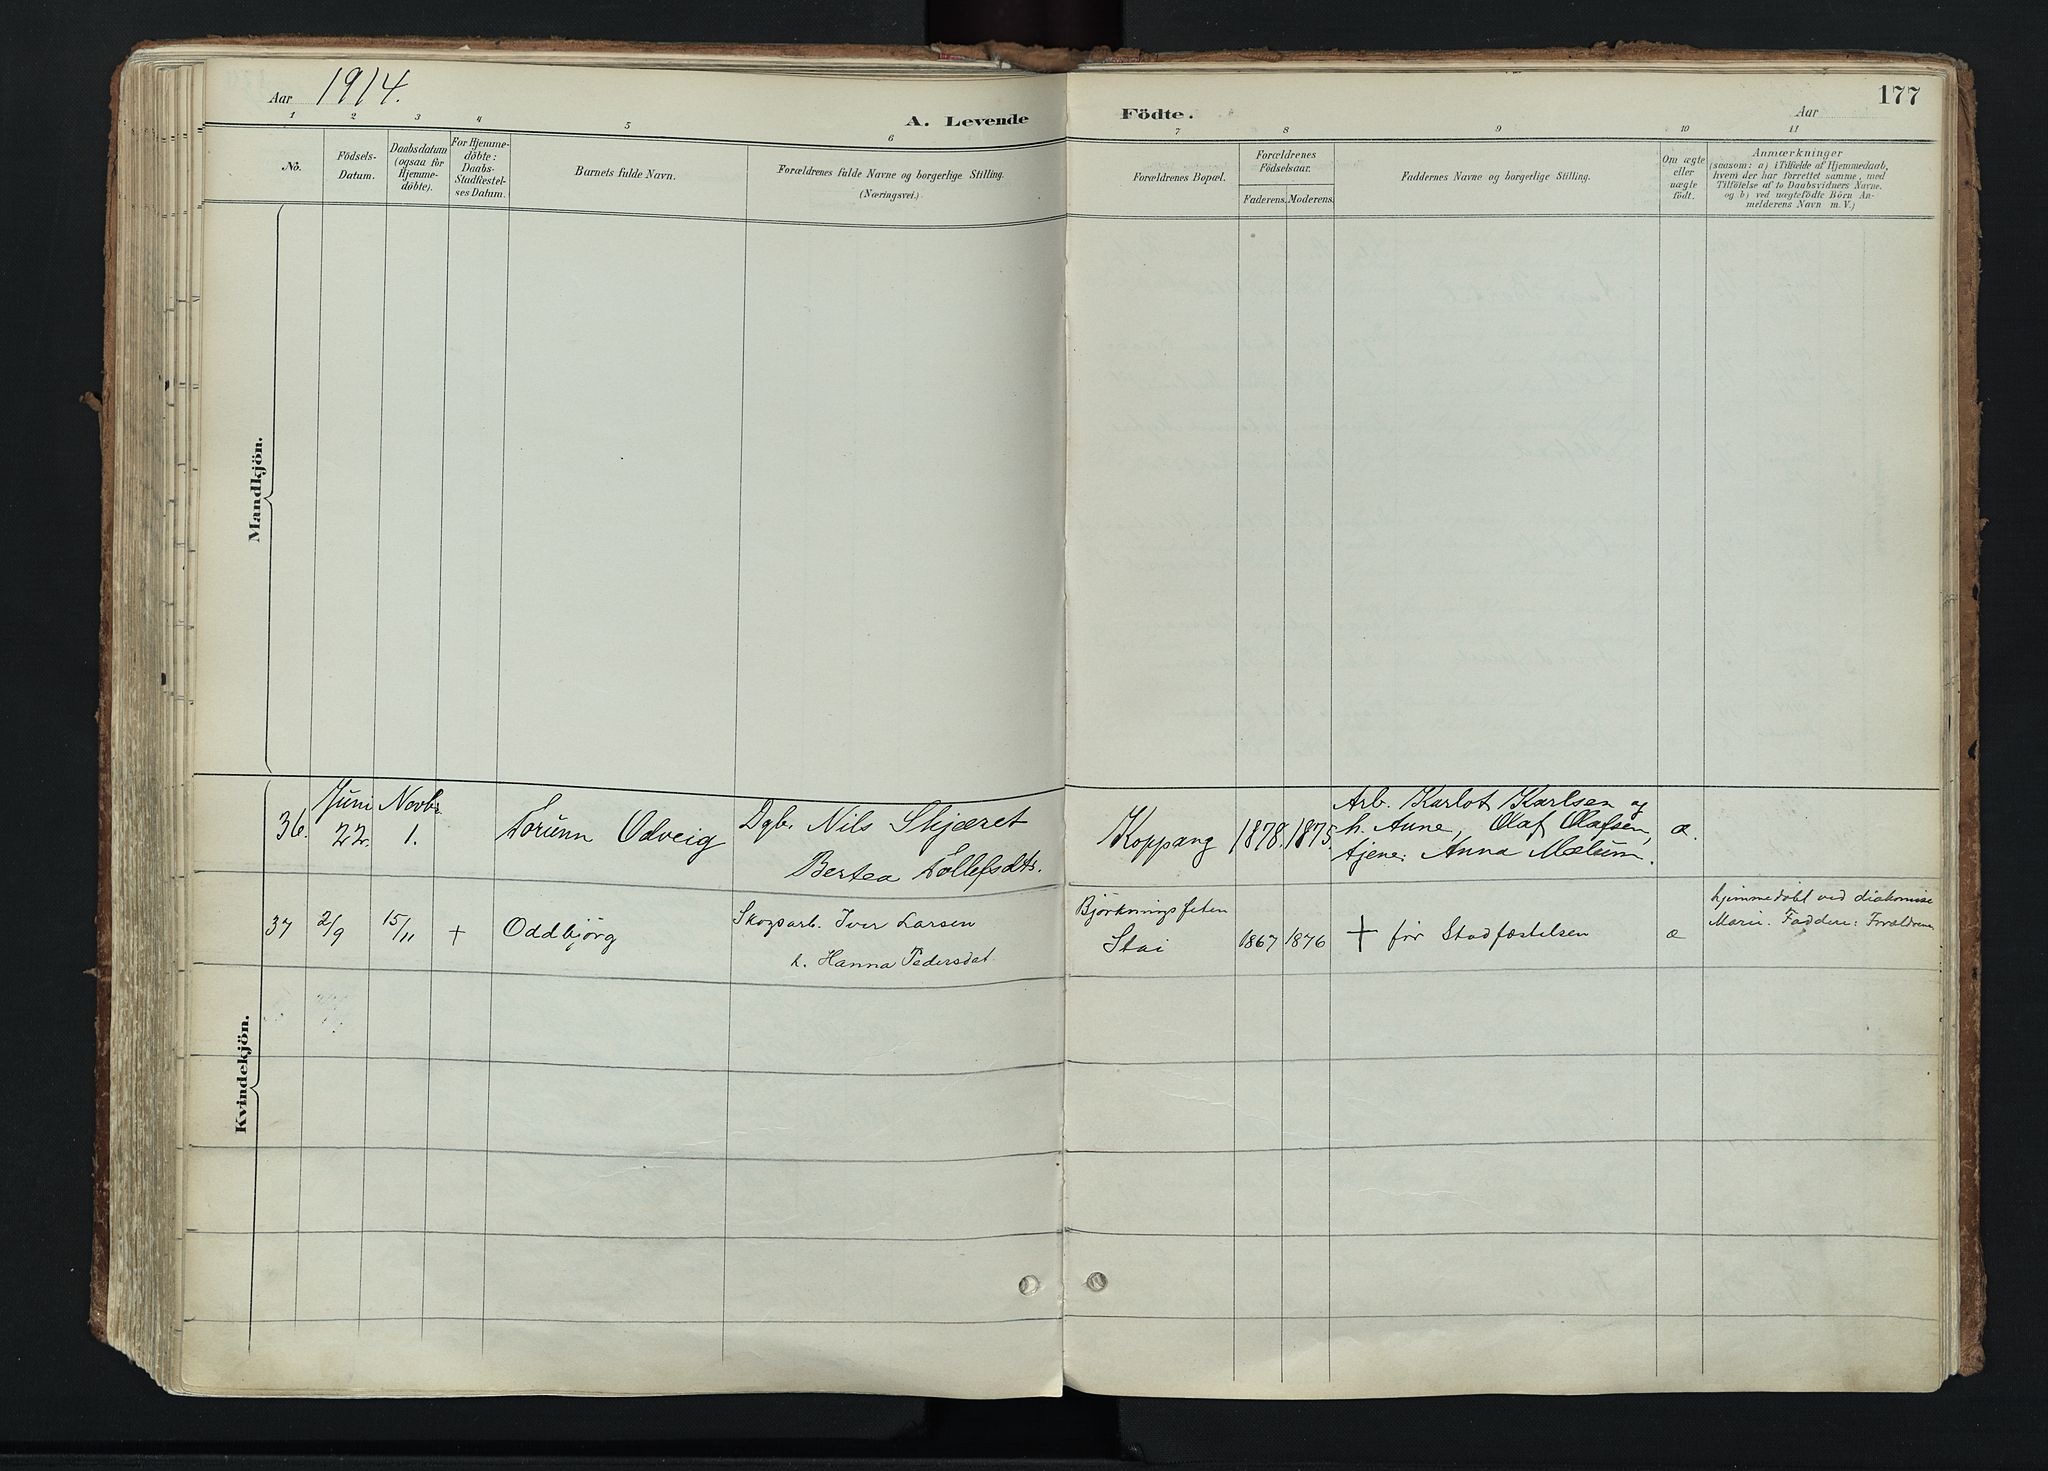 Aar 1914.
A. Levende Födte.
Aar
177
1 2 3 4 5 6 7 8 9 10 11
No.
Födsels-
Datum.
Daabsdatum
(ogsaa for
Hjemme-
døbte).
For Hjemme-
døbte:
Daabs-
Stadfæstel-
ses Datum.
Barnets fulde Navn.
Forældrenes fulde Navne og borgerlige Stilling.
(Næringsvei.)
Forældrenes Bopæl.
Forældrenes
Födselsaar.
Faderens. Moderens.
Faddernes Navne og borgerlige Stilling.
Om ægte
eller
uægte
født.
Anmærkninger
(saasom: a) i Tilfælde af Hjemmedaab,
hvem der har forrettet samme, med
Tilføielse af to Daabsvidners Navne.
og b) ved uægtefødte Börn An-
melderens Navn m. V.)
Mandkjön.
Kvindekjön.
36.
Juni
22.
Novbr.
1.
Torunn Odveig
Dgb. Nils Skjæret
Bertea Tollefsdtr.
Koppang
1878. 1875.
Arb. Karlot Karlsen og
h. Anne, Olaf Olafsen,
tjene: Anna Mælum.
æ.
37
2/9
15/11
+
Oddbjörg
Skogsarb. Iver Larsen
h. Hanna Pedersdat.
Björkningsfeten
Stai
1867 1876
+ før Stadfæstelsen
æ
hjemmedøbt ved diakonisse
Marie. Faddere: Forældrene